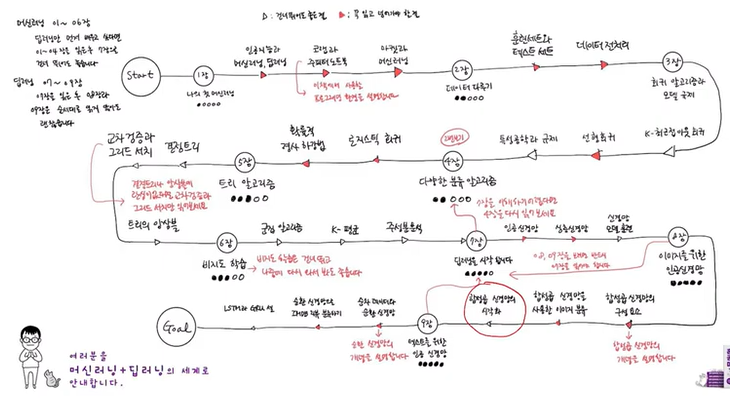 머신러닝 01~06장
딥러닝만 먼저 배우고 싶다면
01~04장을 읽은 후 7장으로
건너 뛰어도 좋습니다
딥러닝 07~09장
△: 건너뛰어도 좋은길
▲: 꼭 읽고 넘어가야 할길
Start
1장
나의 첫 머신러닝
인공지능과
머신러닝, 딥러닝
코랩과
주피터 노트북
이 책에서 사용할
프로그래밍 환경을 설명합니다
마켓과
머신러닝
2장
데이터 다루기
훈련 세트와
테스트 세트
데이터 전처리
3장
회귀 알고리즘과
모델 규제
K-최근접 이웃 회귀
선형 회귀
특성 공학과 규제
4장
다양한 분류 알고리즘
로지스틱 회귀
확률적
경사 하강법
5장
트리 알고리즘
결정 트리
교차 검증과
그리드 서치
결정트리나 앙상블에
교차검증과
그리드 서치만 읽어보세요
트리의 앙상블
6장
비지도 학습
비지도 학습은 건너뛰고
나중에 다시 와서 봐도 좋습니다
군집 알고리즘
K-평균
주성분 분석
7장
딥러닝을 시작합니다
7장을 이해하기 어렵다면
4장을 다시 읽어보세요
인공 신경망
심층 신경망
신경망
모델 훈련
8장
이미지를 위한
인공 신경망
합성곱 신경망의
구성 요소
합성곱 신경망의
개념을 설명합니다
합성곱 신경망을
사용한 이미지 분류
합성곱 신경망의
시각화
9장
텍스트를 위한
인공 신경망
순차 데이터와
순환 신경망
순환 신경망의
개념을 설명합니다
순환 신경망으로
LSTM과 GRU 셀
Goal
여러분을
머신러닝+딥러닝의 세계로
안내합니다.